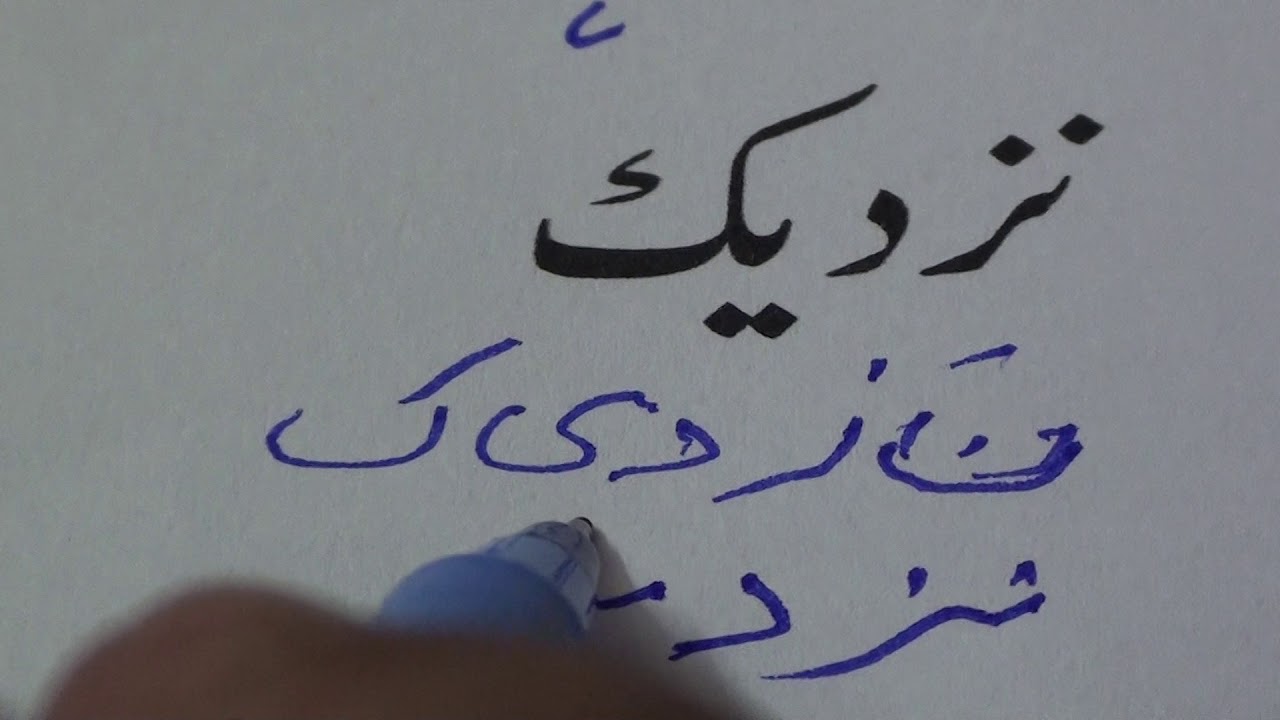 نزدیك
نَ ز د ی ک
نزد